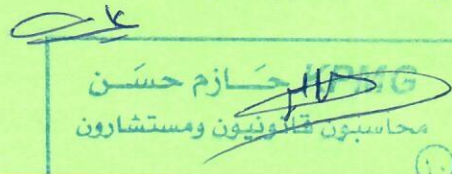 KPMG حـــازم حســـن
محاسبون قانونيون ومستشارون
١٠